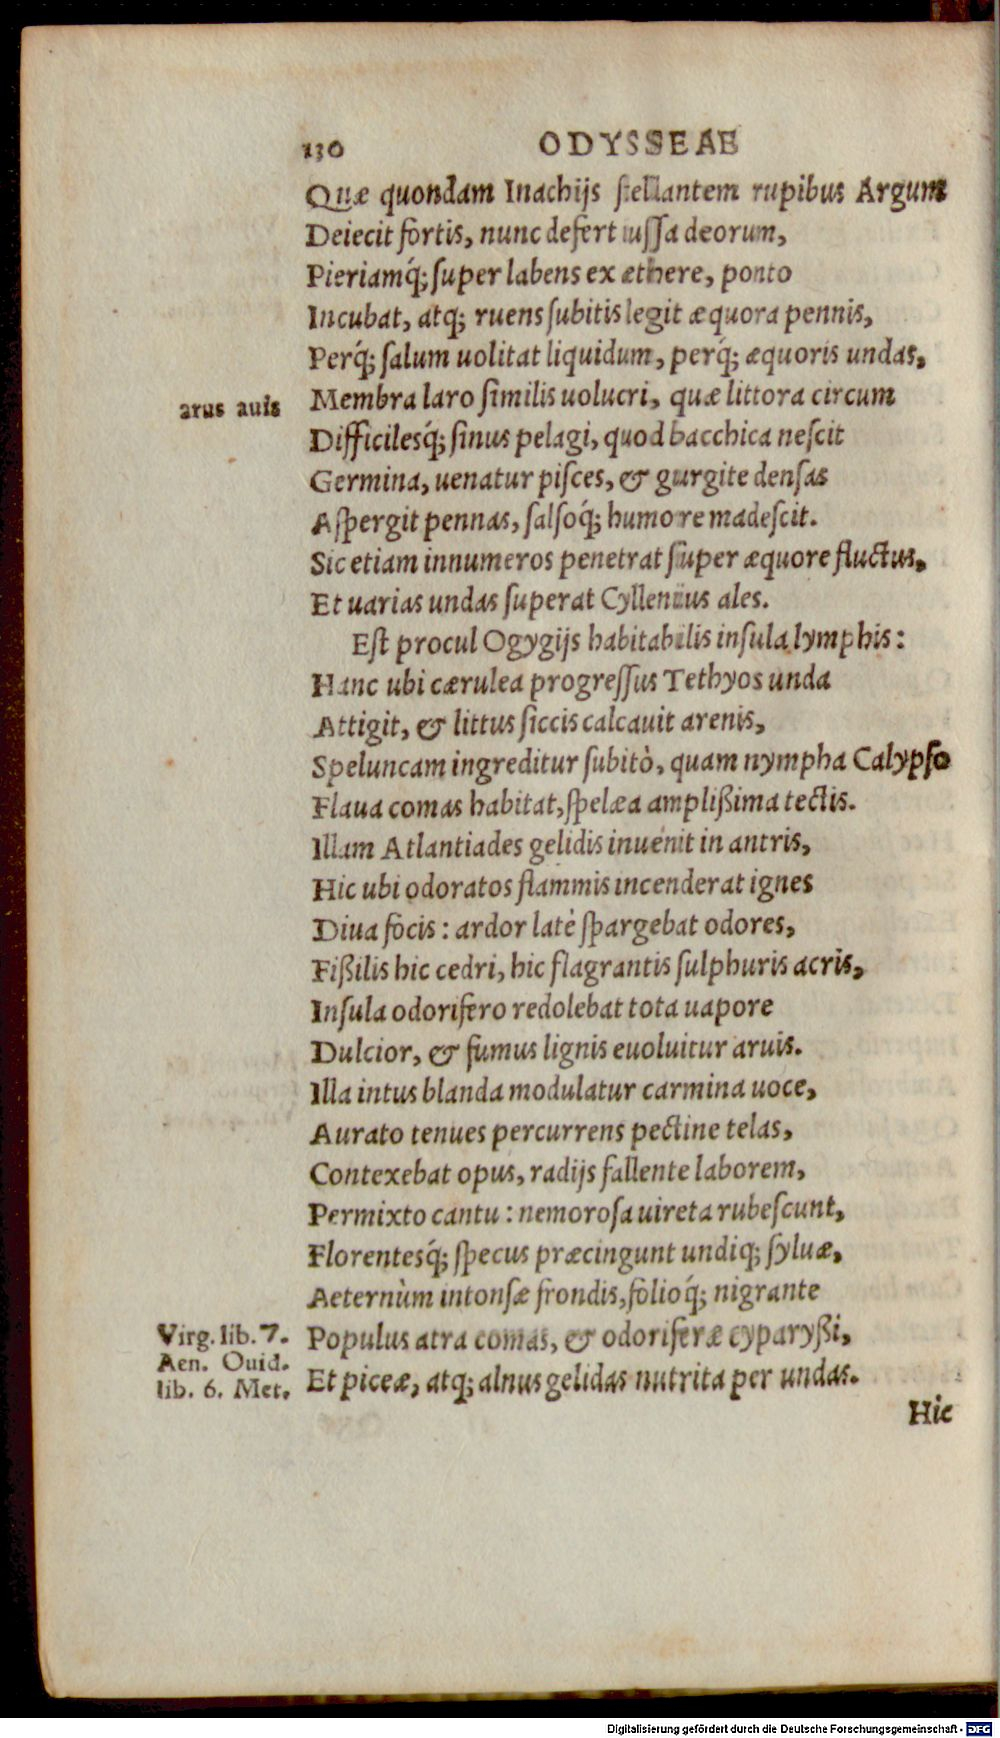 130 ODYSSEAE
Quæ quondam Inachijs stellantem rupibus Argum
Deiecit fortis, nunc defert iussa deorum,
Pieriamq́; super labens ex æthere, ponto
Incubat, atq; ruens subitis legit æquora pennis,
Perq́; salum uolitat liquidum, perq́; æquoris undas,
arus auis
Membra laro similis uolucri, quæ littora circum
Difficilesq́; sinus pelagi, quod bacchica nescit
Germina, uenatur pisces, & gurgite densas
Aspergit pennas, salsoq́; humore madescit.
Sic etiam innumeros penetrat super æquore fluctus,
Et uarias undas superat Cyllenius ales.
Est procul Ogygijs habitabilis insula lymphis:
Hanc ubi cærulea progressus Tethyos unda
Attigit, & littus siccis calcauit arenis,
Speluncam ingreditur subitò, quam nympha Calypso
Flaua comas habitat, spelæa amplißima tectis.
Illam Atlantiades gelidis inuénit in antris,
Hic ubi odoratos flammis incenderat ignes
Diua focis: ardor latè spargebat odores,
Fißilis hic cedri, hic flagrantis sulphuris acris,
Insula odorifero redolebat tota uapore
Dulcior, & fumus lignis euoluitur aruis.
Illa intus blanda modulatur carmina uoce,
Aurato tenues percurrens pectine telas,
Contexebat opus, radijs fallente laborem,
Permixto cantu: nemorosa uireta rubescunt,
Florentesq́; specus præcingunt undiq; syluæ,
Aeternùm intonsæ frondis, folioq́; nigrante
Virg. lib. 7.
Aen. Ouid.
lib. 6. Met.
Populus atra comas, & odoriferæ cyparyßi,
Et piceæ, atq; alnus gelidas nutrita per undas.
Hic
Digitalisierung gefördert durch die Deutsche Forschungsgemeinschaft - DFG